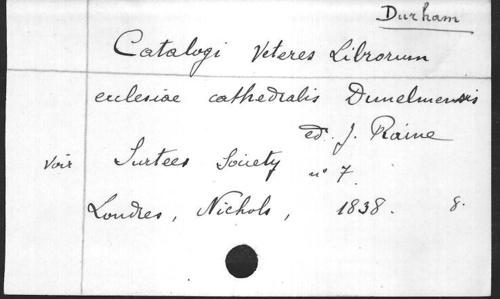 Durham
Catalogi Veteres Librorum
ecclesiae cathedralis Dunelmensis
ed. J. Raine
Voir Surtees Society nº 7.
Londres, Nichols, 1838. 8.